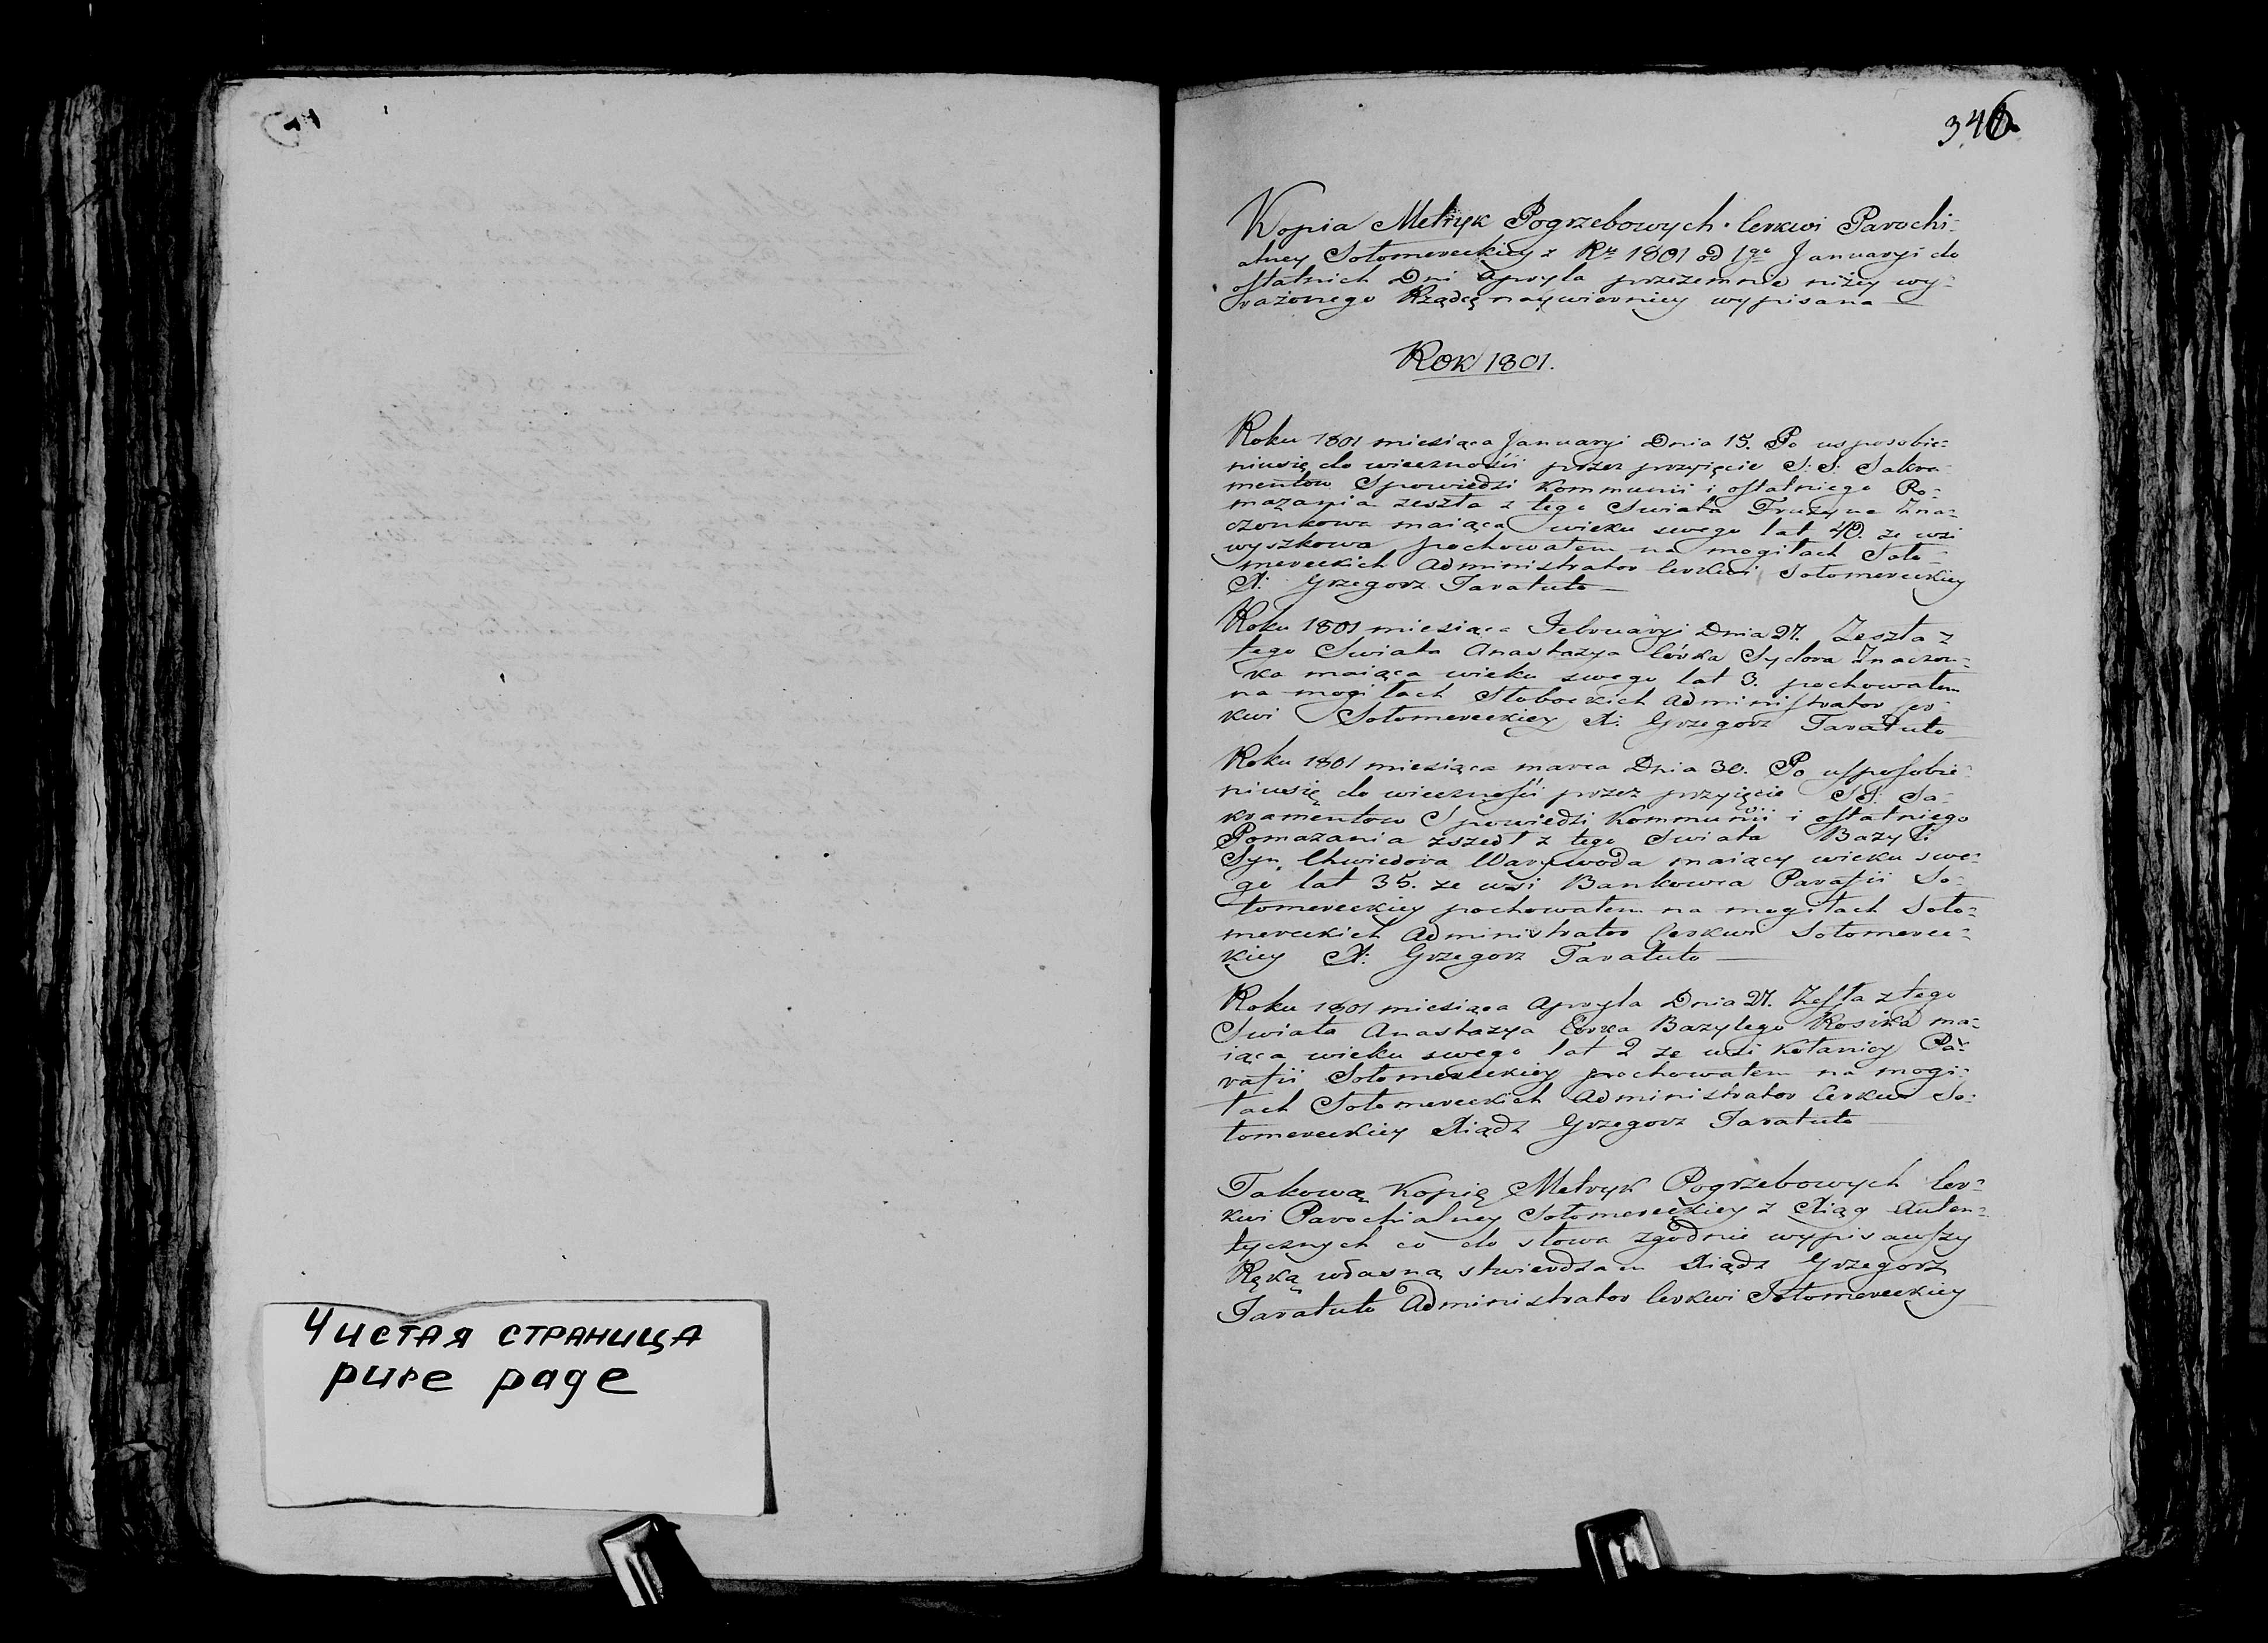 Чистая страница
pure page
346
Kopia Metryk Pogrzebowych Cerkwi Parochi-
alney Sołomereckiey z Rku 1801 od 1go Januaryi do
ostatnich Dni Apryla przezemnie niżey wy-
rażonego Rządcę naywierniey wypisana
Rok 1801.
Roku 1801 miesiąca Januaryi Dnia 15. Po usposobie-
niusię do wieczności przez przyięcie S: S: Sakra-
mentow Spowiedzi Kommunii i ostatniego Po-
mazania zeszła z tego Swiata Zna-
czonkowa maiąca wieku swego lat 40. ze wsi
wyszkowa pochowałem na mogiłach Soło-
mereckich Administrator Cerkwi Sołomereckiey
X: Grzegorz Taratuto
Roku 1801 miesiąca Februaryi Dnia 27. Zeszła z
tego Swiata Anastazya Córka Sydora Znaczon-
ka maiąca wieku swego lat 3. pochowałem
na mogiłach Słobockich Administrator Cer-
kwi Sołomereckiey X: Grzegorz Taratuto
Roku 1801 miesiąca marca Dnia 30. Po usposobie-
niusię do wieczności przez przyięcie SS: Sa-
kramentow Spowiedzi Kommunii i ostatniego
Pomazania zszedł z tego Swiata Bazyli
Syn Chwiedora Warywoda maiący wieku swe-
go lat 35. ze wsi Bankowca Parafii So-
łomereckiey pochowałem na mogiłach Soło-
mereckich Administrator Cerkwi Sołomerec-
kiey X: Grzegorz Taratuto
Roku 1801 miesiąca Apryla Dnia 27. Zeszła z tego
Swiata Anastazya Córka Bazylego Kosika ma-
iąca wieku swego lat 2 ze wsi Kołanicy Pa-
rafii Sołomereckiey pochowałem na mogi-
łach Sołomereckich Administrator Cerkwi So-
łomereckiey Xiądz Grzegorz Taratuto
Takową Kopię Metryk Pogrzebowych Cer-
kwi Parochialney Sołomereckiey z Xiąg Auten-
tycznych co do słowa zgodnie wypisawszy
Ręką własną stwierdzam Xiądz Grzegorz
Taratuto Administrator Cerkwi Sołomereckiey